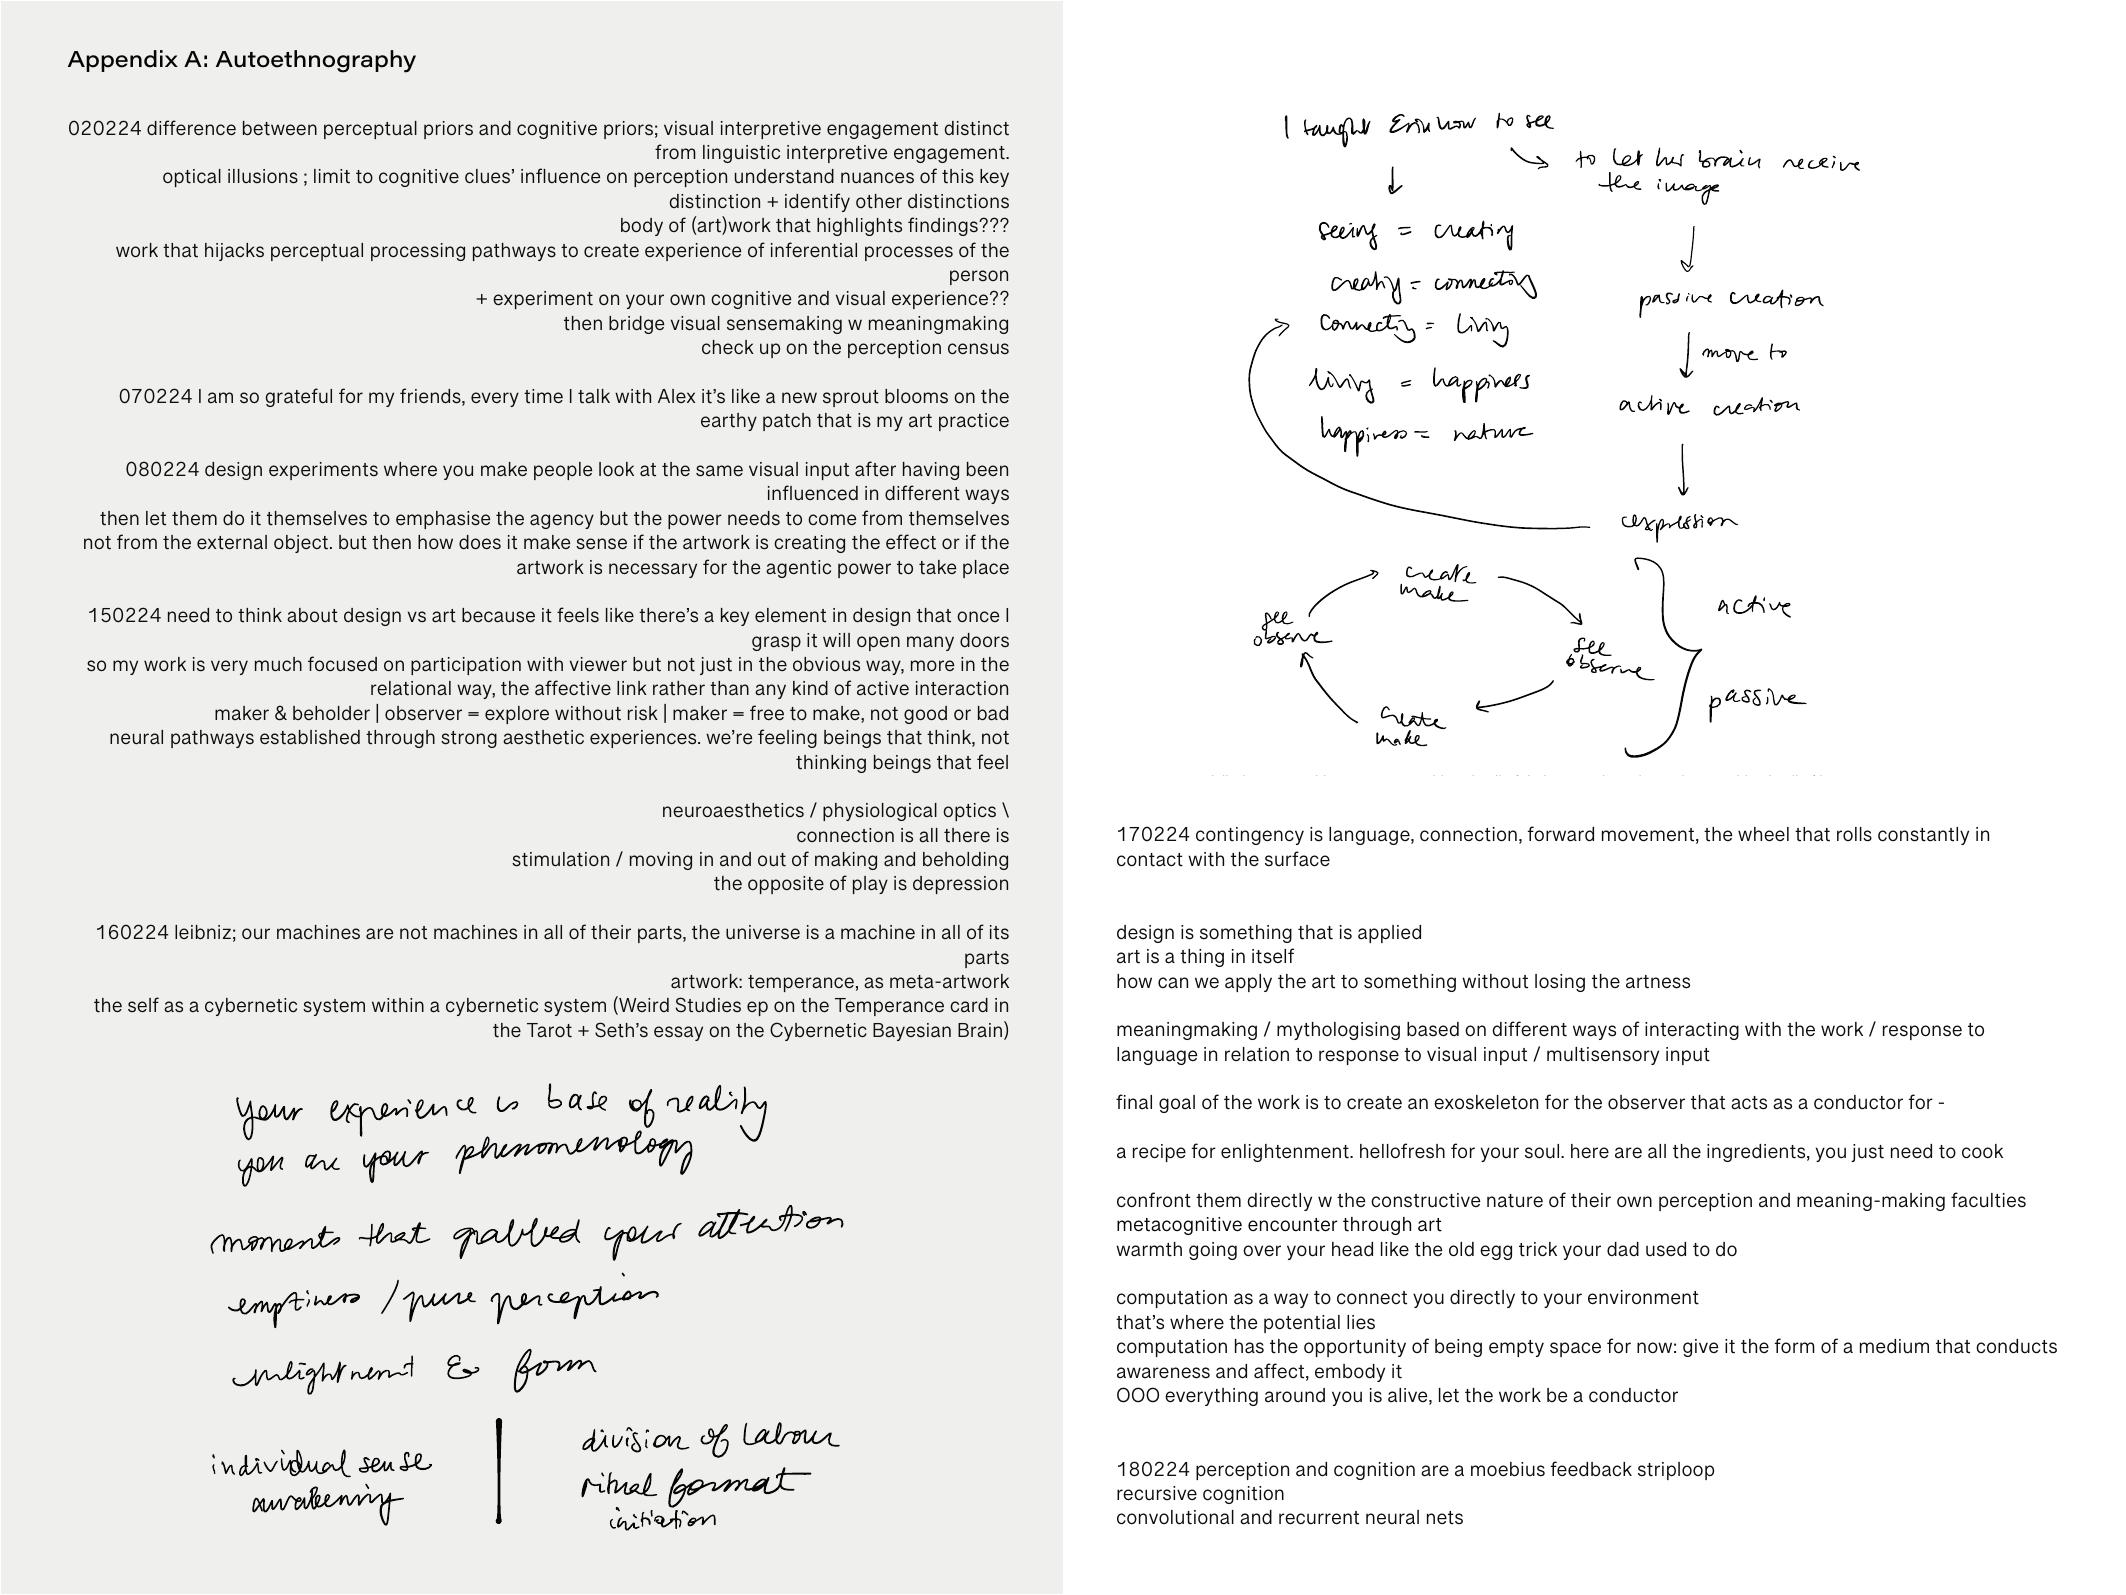 Appendix A: Autoethnography
020224 difference between perceptual priors and cognitive priors; visual interpretive engagement distinct
from linguistic interpretive engagement.
optical illusions ; limit to cognitive clues’ influence on perception understand nuances of this key
distinction + identify other distinctions
body of (art)work that highlights findings???
work that hijacks perceptual processing pathways to create experience of inferential processes of the
person
+ experiment on your own cognitive and visual experience??
then bridge visual sensemaking w meaningmaking
check up on the perception census
070224 I am so grateful for my friends, every time I talk with Alex it’s like a new sprout blooms on the
earthy patch that is my art practice
080224 design experiments where you make people look at the same visual input after having been
influenced in different ways
then let them do it themselves to emphasise the agency but the power needs to come from themselves
not from the external object. but then how does it make sense if the artwork is creating the effect or if the
artwork is necessary for the agentic power to take place
150224 need to think about design vs art because it feels like there’s a key element in design that once I
grasp it will open many doors
so my work is very much focused on participation with viewer but not just in the obvious way, more in the
relational way, the affective link rather than any kind of active interaction
maker & beholder | observer = explore without risk | maker = free to make, not good or bad
neural pathways established through strong aesthetic experiences. we’re feeling beings that think, not
thinking beings that feel
neuroaesthetics / physiological optics \
connection is all there is
stimulation / moving in and out of making and beholding
the opposite of play is depression
160224 leibniz; our machines are not machines in all of their parts, the universe is a machine in all of its
parts
artwork: temperance, as meta-artwork
the self as a cybernetic system within a cybernetic system (Weird Studies ep on the Temperance card in
the Tarot + Seth’s essay on the Cybernetic Bayesian Brain)
your experience is base of reality
you are your phenomenology
moments that grabbed your attention
emptiness / pure perception
enlightnemt & form
individual sense
awakening
division of labour
ritual format
initiation
I taught Erin how to see
to let her brain receive
the image
seeing = creating
creating = connecting
connecting = living
living = happiness
happiness = nature
passive creation
move to
active creation
expression
create
make
see
observe
see
observe
create
make
active
passive
170224 contingency is language, connection, forward movement, the wheel that rolls constantly in
contact with the surface
design is something that is applied
art is a thing in itself
how can we apply the art to something without losing the artness
meaningmaking / mythologising based on different ways of interacting with the work / response to
language in relation to response to visual input / multisensory input
final goal of the work is to create an exoskeleton for the observer that acts as a conductor for -
a recipe for enlightenment. hellofresh for your soul. here are all the ingredients, you just need to cook
confront them directly w the constructive nature of their own perception and meaning-making faculties
metacognitive encounter through art
warmth going over your head like the old egg trick your dad used to do
computation as a way to connect you directly to your environment
that’s where the potential lies
computation has the opportunity of being empty space for now: give it the form of a medium that conducts
awareness and affect, embody it
OOO everything around you is alive, let the work be a conductor
180224 perception and cognition are a moebius feedback striploop
recursive cognition
convolutional and recurrent neural nets